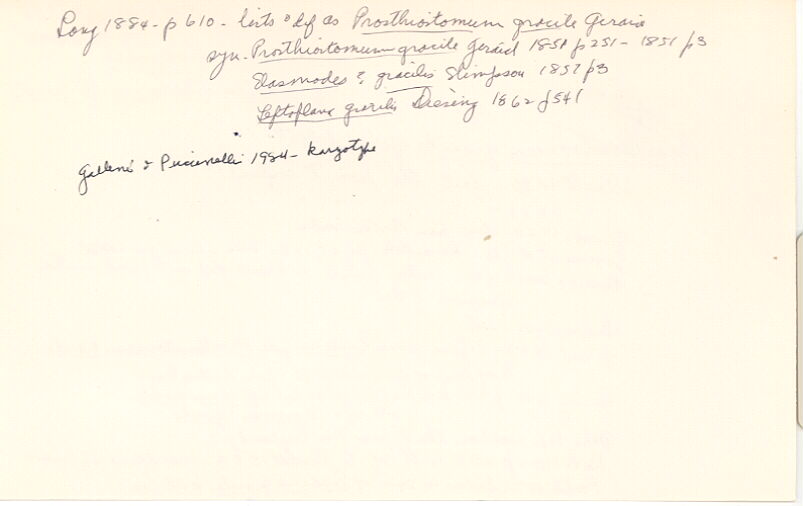 Lang 1884 - p 610 - lists & def as Prosthiostomum gracile Girard
syn. Prosthiostomum gracile Girard 1851 p 251 - 1851 p3
Elasmodes ? gracilis Stimpson 1857 p3
Leptoplana gracilis Diesing 1862 p 541
Galleni & Puccinelli 1984 - karyotype